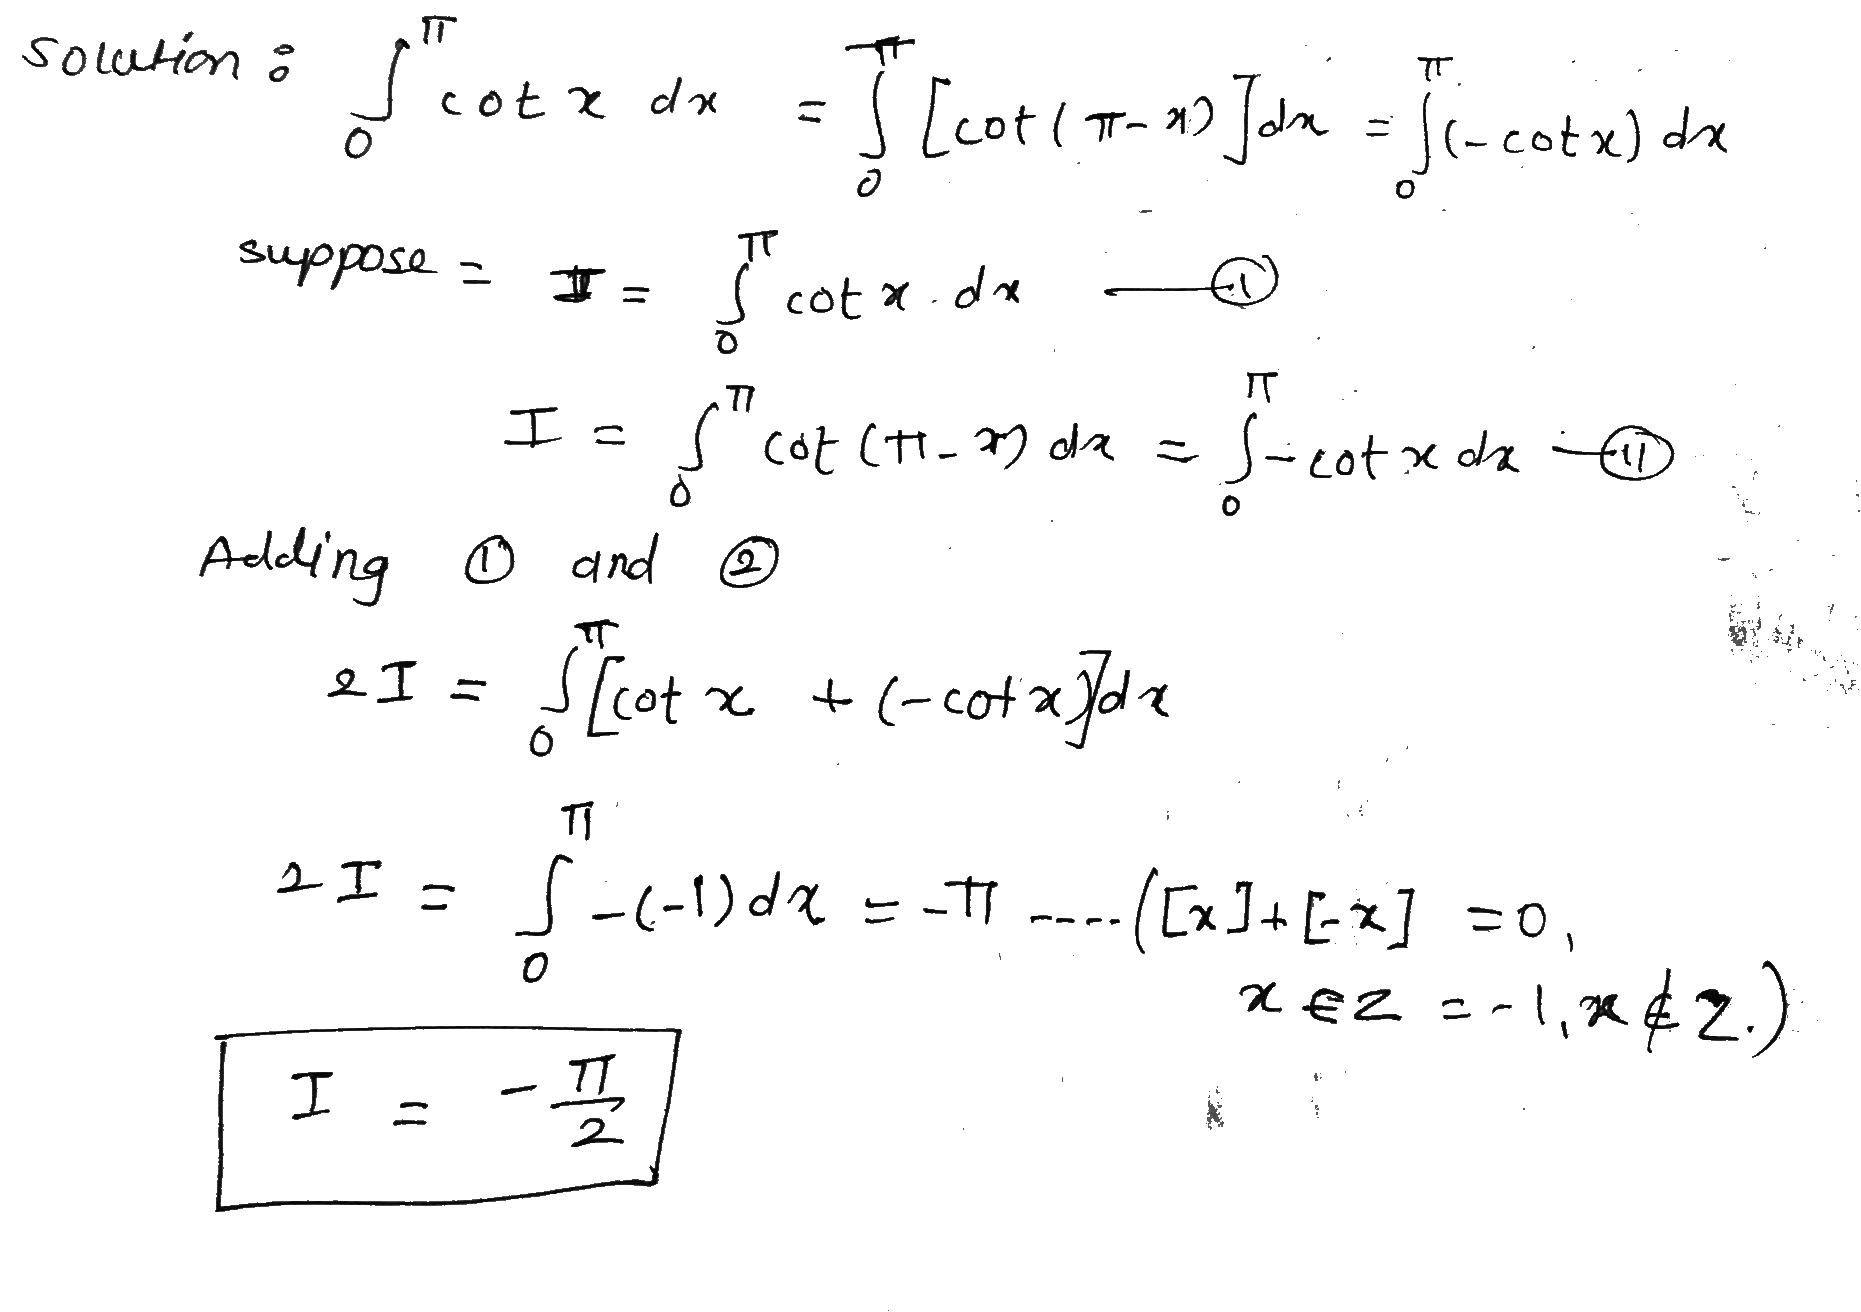 Solution : ∫₀^π cot x dx = ∫₀^π [cot(π-x)]dx = ∫₀^π (-cotx) dx
suppose = I = ∫₀^π cot x . dx —— ①
I = ∫₀^π cot (π-x) dx = ∫₀^π -cot x dx — ⑪
Adding ① and ②
2I = ∫₀^π [cot x + (-cotx)]dx
2I = ∫₀^π -(-1)dx = -π ----([x]+[-x] =0,
x ∈ Z = -1, x ∉ Z.)
I = -π/2